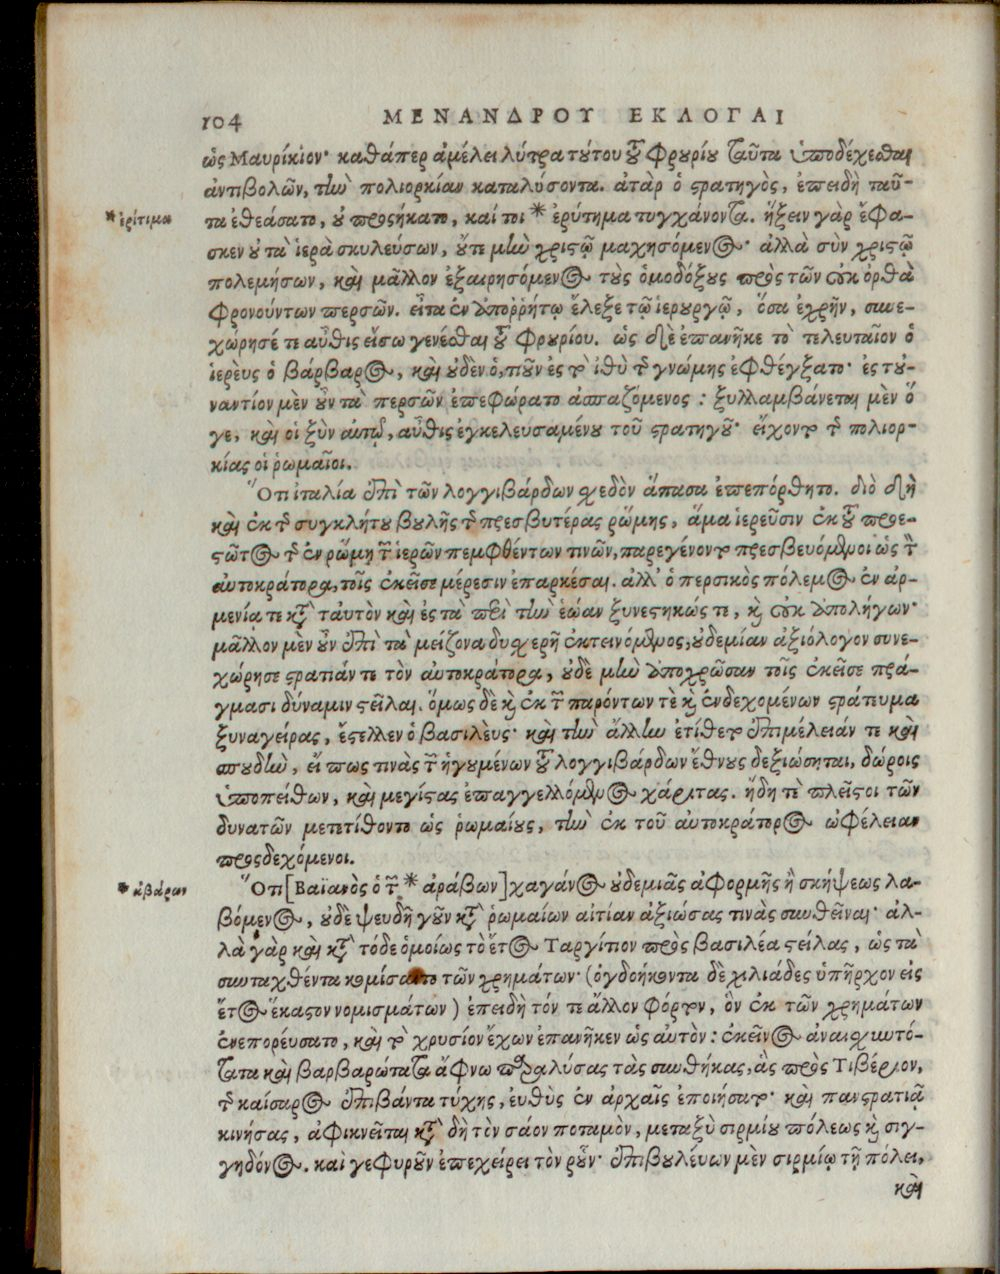 104 ΜΕΝΑΝΔΡΟΥ ΕΚΛΟΓΑΙ
ὡς Μαυρίκιον· καθάπερ ἀμέλει λύτρα τούτου τοῦ φρουρίου ταῦτα ὑποδέχεσθαι
ἀντιβολῶν, τὴν πολιορκίαν καταλύσοντα. ἀτὰρ ὁ στρατηγὸς, ἐπειδὴ ταῦ-
*ἐρίτιμα
τα ἐθεάσατο, οὐ προσήκατο, καί τοι * ἐρύτημα τυγχάνοντα. ἥξειν γὰρ ἔφα-
σκεν οὐ τὰ ἱερὰ σκυλεύσων, οὔτε μὴν χριστῷ μαχησόμενος· ἀλλὰ σὺν χριστῷ
πολεμήσων, καὶ μᾶλλον ἐξαιρησόμενος τοὺς ὁμοδόξους πρὸς τῶν οὐκ ὀρθὰ
φρονούντων περσῶν. εἶτα ἐν ἀποῤῥήτῳ ἔλεξε τῷ ἱερουργῷ, ὅσα ἐχρῆν, συνε-
χώρησέ τε αὖθις εἴσω γενέσθαι τοῦ φρουρίου. ὡς δὲ ἐπανῆκε τὸ τελευταῖον ὁ
ἱερεὺς ὁ βάρβαρος, καὶ οὐδὲν ὁ,πῶν ἐς τὸ ἰθὺ τῆς γνώμης ἐφθέγξατο· ἐς τοὐ-
ναντίον μὲν οὖν τὰ περσῶν ἐπεφώρατο ἀσπαζόμενος: ξυλλαμβάνεται μὲν ὅ
γε, καὶ οἱ ξὺν αὐτῷ, αὖθις ἐγκελευσαμένου τοῦ στρατηγοῦ· εἴχοντο τῆς πολιορ-
κίας οἱ ῥωμαῖοι.
Ὅτι ἰταλία ἐπὶ τῶν λογγιβάρδων σχεδὸν ἅπασα ἐπεπόρθητο. διὸ δὴ
καὶ ἐκ τῆς συγκλήτου βουλῆς τῆς πρεσβυτέρας ῥώμης, ἅμα ἱερεῦσιν ἐκ τοῦ προε-
στῶτος τῆς ἐν ρώμῃ τῶν ἱερῶν πεμφθέντων τινῶν, παρεγένοντο πρεσβευόμενοι ὡς τὸν
αὐτοκράτορα, τοῖς ἐκεῖσε μέρεσιν ἐπαρκέσαι. ἀλλ' ὁ περσικὸς πόλεμος ἐν ἀρ-
μενία τε κατὰ ταὐτὸν καὶ ἐς τὰ περὶ τὴν ἑώαν ξυνεστηκώς τε, καὶ οὐκ ἀπολήγων·
μᾶλλον μὲν οὖν ἐπὶ τὰ μείζονα δυσχερῆ ἐκτεινόμενος, οὐδεμίαν ἀξιόλογον συνε-
χώρησε στρατιάν τε τὸν αὐτοκράτορα, οὐδε μὴν ἀποχρῶσαν τοῖς ἐκεῖσε πρά-
γμασι δύναμιν στεῖλαι. ὅμως δὲ καὶ ἐκ τῶν παρόντων τὲ καὶ ἐνδεχομένων στράτευμα
ξυναγείρας, ἔστελλεν ὁ βασιλεύς· καὶ τὴν ἄλλην ἐτίθετο ἐπιμέλειάν τε καὶ
σπουδὴν, εἴ πως τινὰς τῶν ἡγουμένων τοῦ λογγιβάρδων ἔθνους δεξιώσηται, δώροις
ὑποπείθων, καὶ μεγίστας ἐπαγγελλόμενος χάριτας. ἤδη τὲ πλεῖστοι τῶν
δυνατῶν μετετίθοντο ὡς ῥωμαίους, τὴν ἐκ τοῦ αὐτοκράτορος ὠφέλειαν
προσδεχόμενοι.
*ἀβάρων
Ὅτι [Βαϊανὸς ὁ τῶν * ἀράβων] χαγάνος οὐδεμιᾶς ἀφορμῆς ἢ σκήψεως λα-
βόμενος, οὐδὲ ψευδῆ γοῦν κατὰ ῥωμαίων αἰτίαν ἀξιώσας τινὰς συνθεῖναι· ἀλ-
λὰ γὰρ καὶ κατὰ τόδε ὁμοίως τὸ ἔτος Ταργίτιον πρὸς βασιλέα στείλας, ὡς τὰ
συνταχθέντα κομίσαιτο τῶν χρημάτων· (ὀγδοήκοντα δὲ χιλιάδες ὑπῆρχον εἰς
ἔτος ἕκαστον νομισμάτων) ἐπειδὴ τόν τε ἄλλον φόρτον, ὃν ἐκ τῶν χρημάτων
ἐνεπορεύσατο, καὶ τὸ χρυσίον ἔχων ἐπανῆκεν ὡς αὐτὸν: ἐκεῖνος ἀναισχυντό-
τατα καὶ βαρβαρώτατα ἄφνω παραλύσας τὰς συνθήκας, ἃς πρὸς Τιβέριον,
τῆς καίσαρος ἐπιβάντα τύχης, εὐθὺς ἐν ἀρχαῖς ἐποιήσατο· καὶ πανστρατιᾷ
κινήσας, ἀφικνεῖται κατὰ δὴ τὸν σάον ποταμὸν, μεταξὺ σιρμίου πόλεως καὶ σιγ-
γηδόνος. καὶ γεφυροῦν ἐπεχείρει τὸν ῥοῦν· ἐπιβουλεύων μὲν σιρμίῳ τῇ πόλει,
καὶ